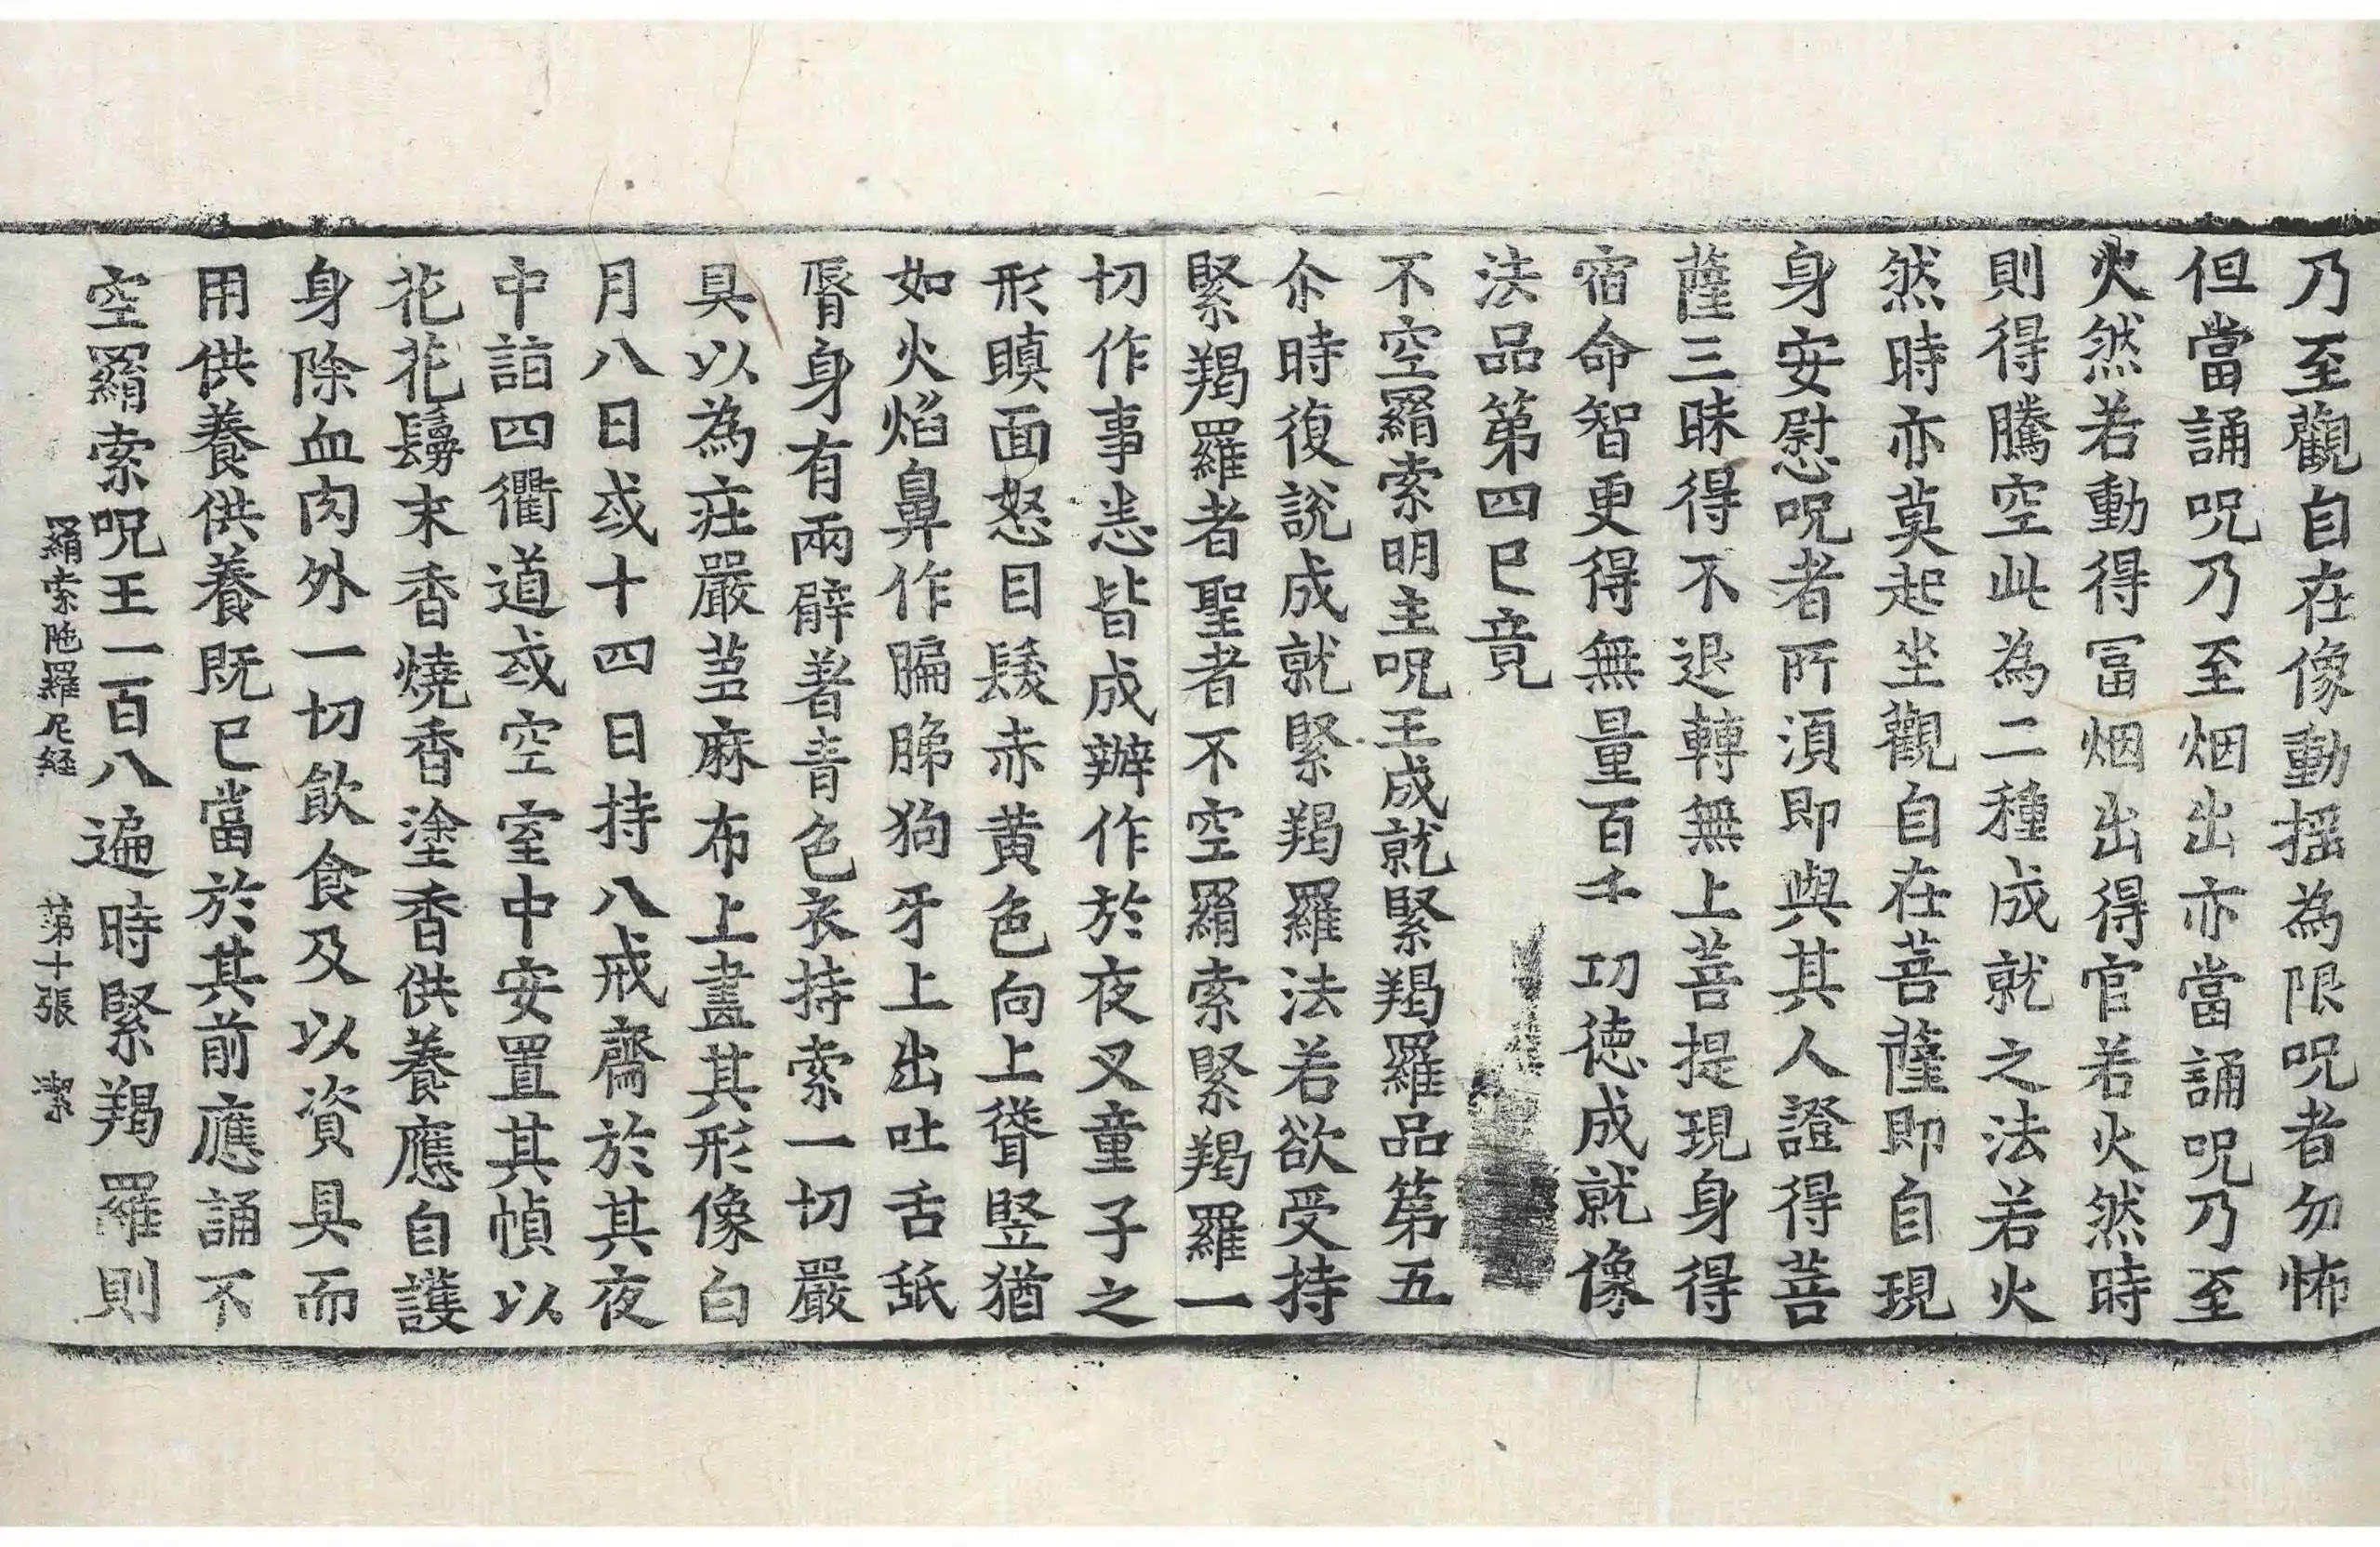 乃至觀自在像動搖為限呪者勿怖
但當誦呪乃至烟出亦當誦呪乃至
火然若動得冨烟出得官若火然時
則得騰空此為二種成就之法若火
然時亦莫起坐觀自在菩薩即自現
身安慰呪者所須即與其人證得菩
薩三昧得不退轉無上菩提現身得
宿命智更得無量百千功德成就像
法品第四已竟
不空羂索明主呪王成就緊羯羅品第五
尒時復說成就緊羯羅法若欲受持
緊羯羅者聖者不空羂索緊羯羅一
切作事悉皆成辦作於夜叉童子之
形瞋面怒目髮赤黃色向上聳竪猶
如火焰鼻作䏢䏲狗牙上出吐舌舐
脣身有兩臂著青色衣持索一切嚴
具以為庄嚴莒麻布上畫其形像白
月八日或十四日持八戒齋於其夜
中詣四衢道或空室中安置其幀以
花花鬘末香燒香塗香供養應自護
身除血肉外一切飲食及以資具而
用供養供養既已當於其前應誦不
空羂索呪王一百八遍時緊羯羅則
羂索陁羅尼経 苐十張 潔